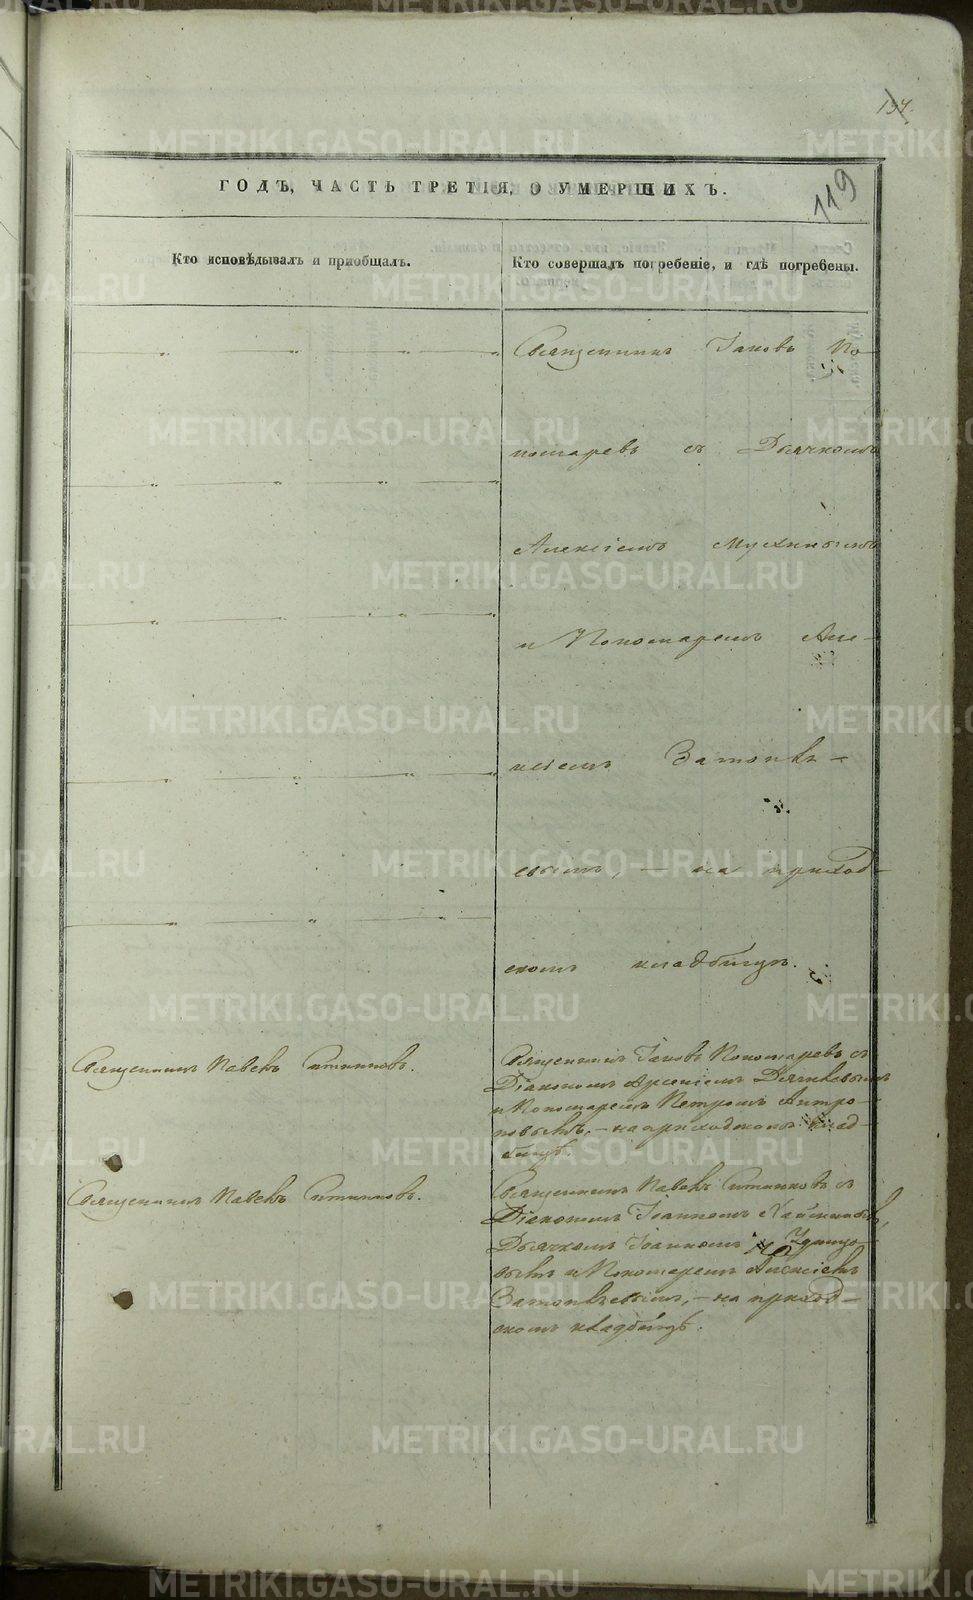 134.
119
ГОДЪ, ЧАСТЬ ТРЕТІЯ, О УМЕРШИХЪ.
Кто исповѣдывалъ и пріобщалъ.
Кто совершалъ погребеніе, и гдѣ погребены.
Священникъ Іаковъ По-
номаревъ съ Дьячкомъ
Алексіемъ Мухинымъ
и Пономаремъ Але-
ксіемъ
евымъ, – на приход-
скомъ кладбищѣ.
Священникъ Павелъ
Священникъ Іаковъ Пономаревъ съ
Діакономъ Арсеніемъ
и Пономаремъ Петромъ Антро-
повымъ, – на приходскомъ клад-
бищѣ.
Священникъ Павелъ
Священникъ Павелъ съ
Діакономъ Іоанномъ
Дьячкомъ Іоанномъ
вымъ и Пономаремъ Алексіемъ
– на приход-
скомъ кладбищѣ.
METRIKI.GASO-URAL.RU